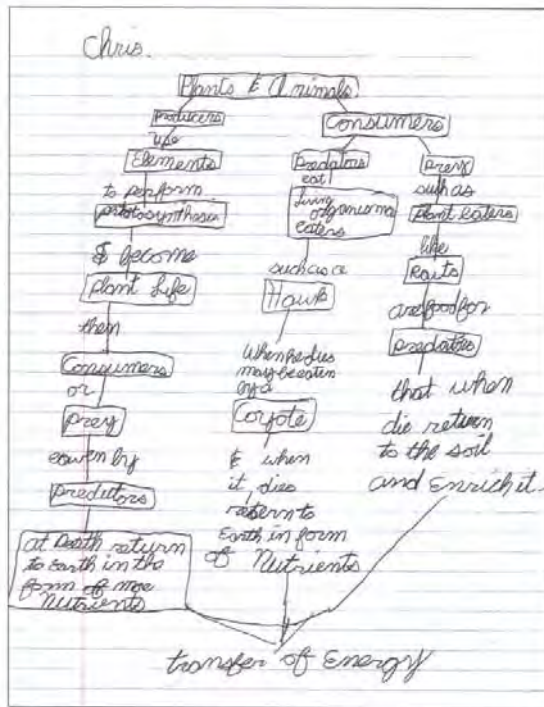 Chris.
Plants & Animals
Producers
use
Elements
to perform
photosynthesis
& become
Plant Life
then
Consumers
or
Prey
eaven by
Predutors
at Death return
to Earth in the
form of more
Nutrients
Consumers
Predators
eat
living
organisms
eaters
such as a
Hawk
When he dies
may be eaten
by a
Coyote
& when
it, dies
return to
Earth in form
of Nutrients
prey
such as
Plant Eaters
like
are food for
predators
that when
die return
to the soil
and Enrich it.
transfer of Energy